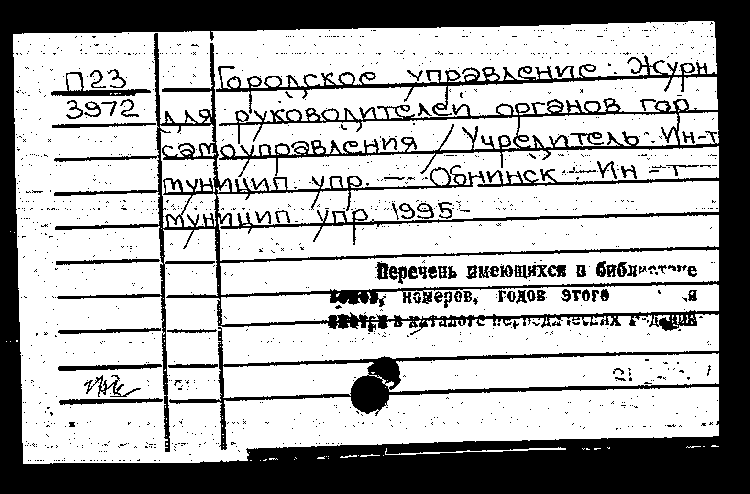 П23
3972
Городское управление: Журн.
для руководителей органов гор.
самоуправления / Учредитель: Ин-т
муницип. упр. — Обнинск — Ин-т
муницип. упр., 1995-
Перечень имеющихся в библиотеке
томов, номеров, годов этого
смотри в каталоге периодических изданий